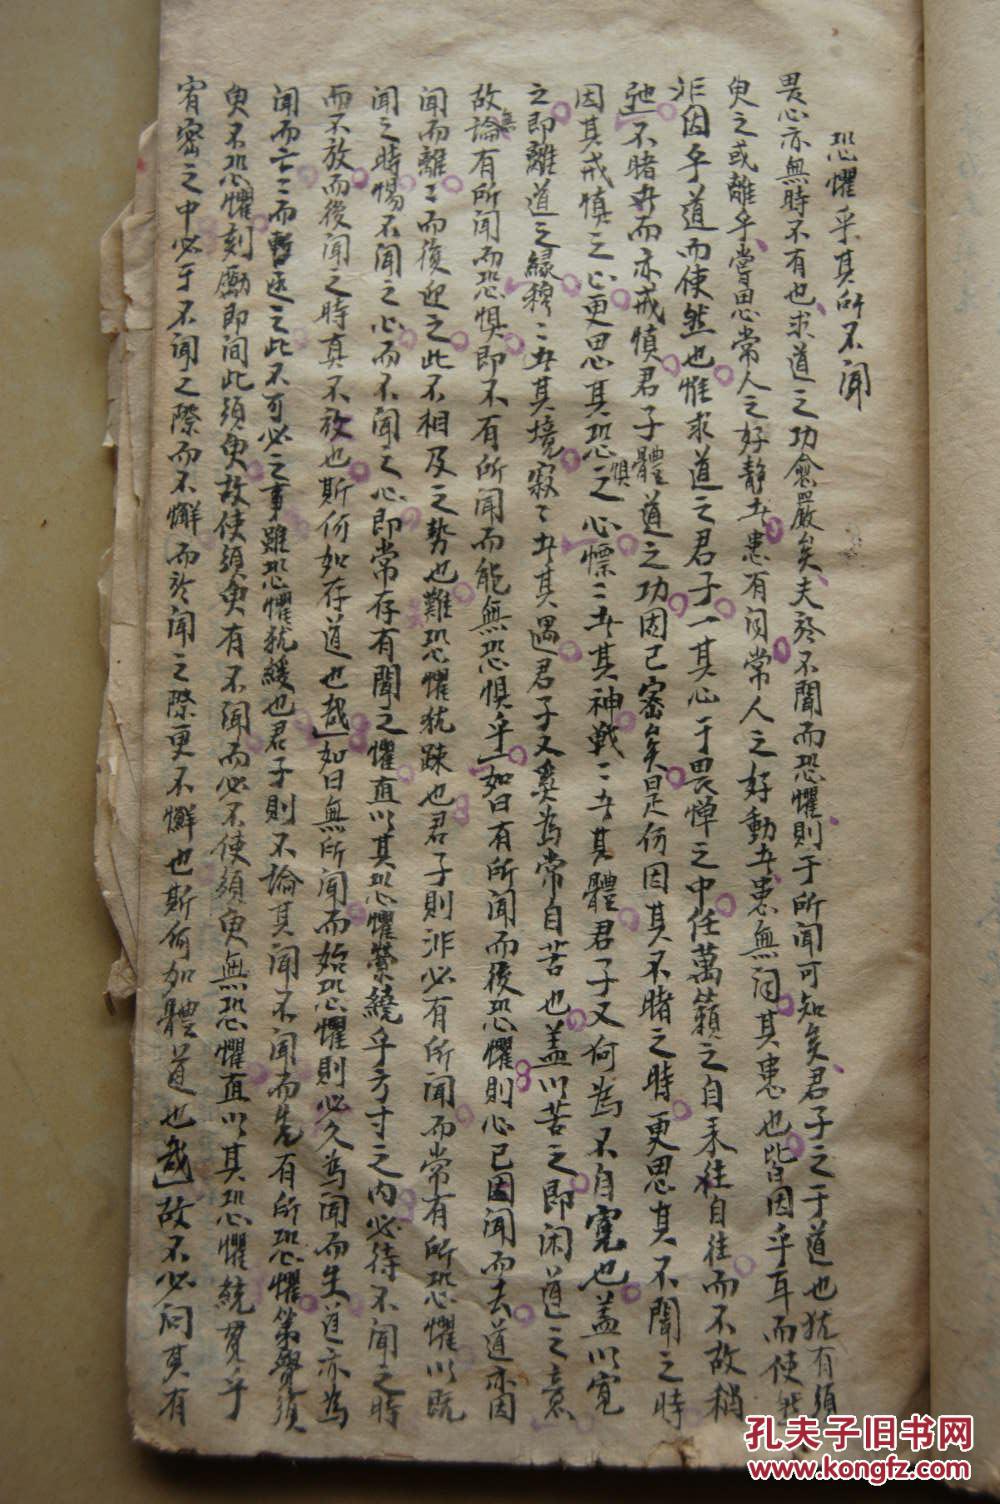 恐懼乎其所不聞
畏心亦無時不有也求道之功愈嚴矣夫於不聞而恐懼則于所聞可知矣君子之于道也犹有須
臾之或離乎嘗思常人之好静者患有间常人之好動者患無间其患也皆因乎耳而使然
非因乎道而使然也惟求道之君子一其心于畏憚之中任萬籟之自来往自往而不故稍
弛不睹者而亦戒慎君子體道之功因已密矣是仿因其不睹之時更思其不聞之時
因其戒慎之心更思其恐惧之心慓二者其神戰二者其體君子又何為不自寬也盖以寬
之即離道之緣穆二者其境寂二者其遇君子又奚為常自苦也盖以苦之即闲道之意
故論有所聞而恐惧即不有所聞而能無恐惧乎如曰有所聞而後恐懼則心已因聞而去道亦因
聞而離二而復迎之此不相及之势也難恐懼犹疎也君子則非必有所聞而常有所恐懼以既
聞之時惕不聞之心而不聞之心即常存有聞之懼直以其恐懼縈繞乎方寸之内必待不聞之時
而不放而後聞之時真不放也斯何如存道也哉如曰無所聞而始恐懼則必久為聞而生道亦為
聞而亡二而暫返之此不可必之事雖恐懼犹緩也君子則不論其聞不聞而先有所恐懼第覺須
臾不恐懼刻勵即间此須臾故使須臾有不聞而必不使須臾無恐懼直以其恐懼統貫乎
宥密之中必于不聞之際而不懈而於聞之際更不懈也斯何如體道也哉故不必问其有
無
孔夫子旧书网
www.kongfz.com